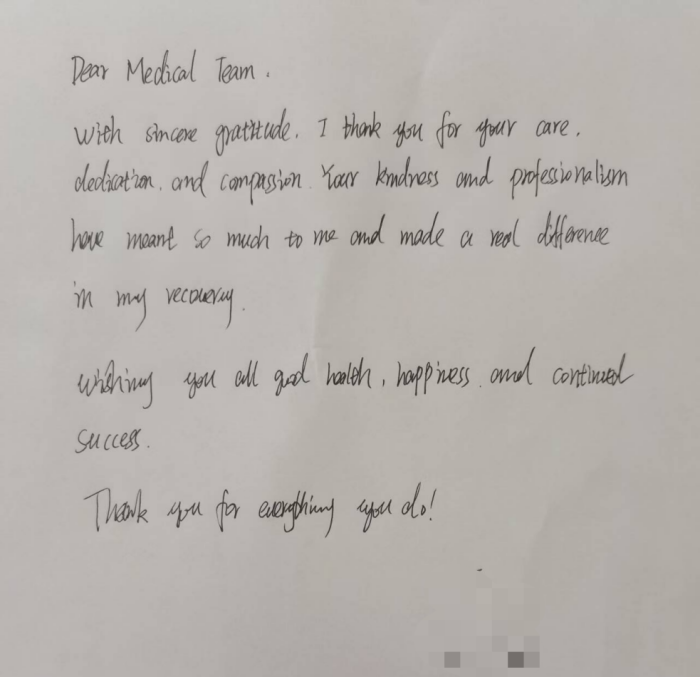 Dear Medical Team.
With sincere gratitude. I thank you for your care.
dedication. and compassion. Your kindness and professionalism
have meant so much to me and made a real difference
in my recovery.
Wishing you all good health, happiness. and continued
success.
Thank you for everything you do!